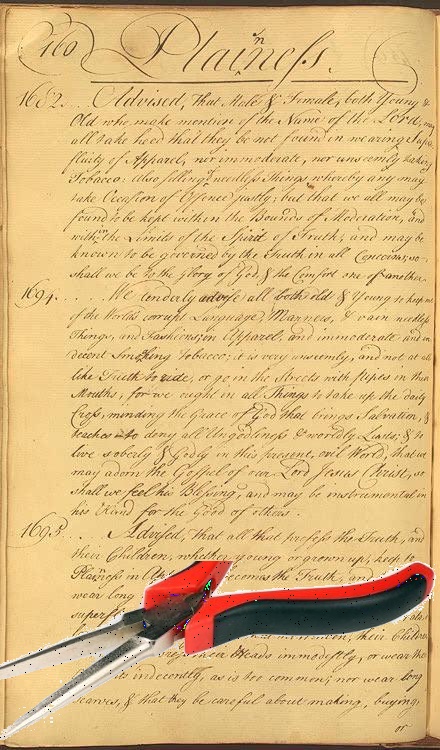 160
Plainness.
1682... Advised, That Male & Female, both Young &
Old who make mention of the Name of the Lord, may
all take heed that they be not found in wearing Supe
fluity of Apparel, nor immoderate, nor unseemly taking
Tobacco: Also selling needless Things whereby any may
take Occasion of Offence justly; but that we all may be
found to be kept within the Bounds of Moderation, and
within the Limits of the Spirit of Truth; and may be
known to be governed by the Truth in all Concerns, so
shall we be to the Glory of God, & the Comfort one of another.
1694..... We tenderly advise all both old & Young to keep out
of the World's corrupt Language, Manners, & vain needless
Things, and Fashions, in Apparel; and immoderate and in
decent Smoking Tobacco; it is very unseemly, and not at all
like Truth to ride, or go in the Streets with pipes in their
Mouths, for we ought in all Things to take up the daily
Cross, minding the Grace of God that brings Salvation, &
teaches to deny all Ungodliness & worldly Lusts, & to
live soberly & Godly in this present, evil World, that we
may adorn the Gospel of our Lord Jesus Christ, so
shall we feel his Blessing, and may be instrumental in
his Hand for the Good of others.
1695... Advised, That all that profess the Truth, and
their Children, whether young or grown up, keep to
Plainness in becomes the Truth, and
wear long
superfl
their Children
their Heads immodestly, or wear the
its indecently, as is too common; nor wear long
Scarves, & that they be careful about making, buying,
or